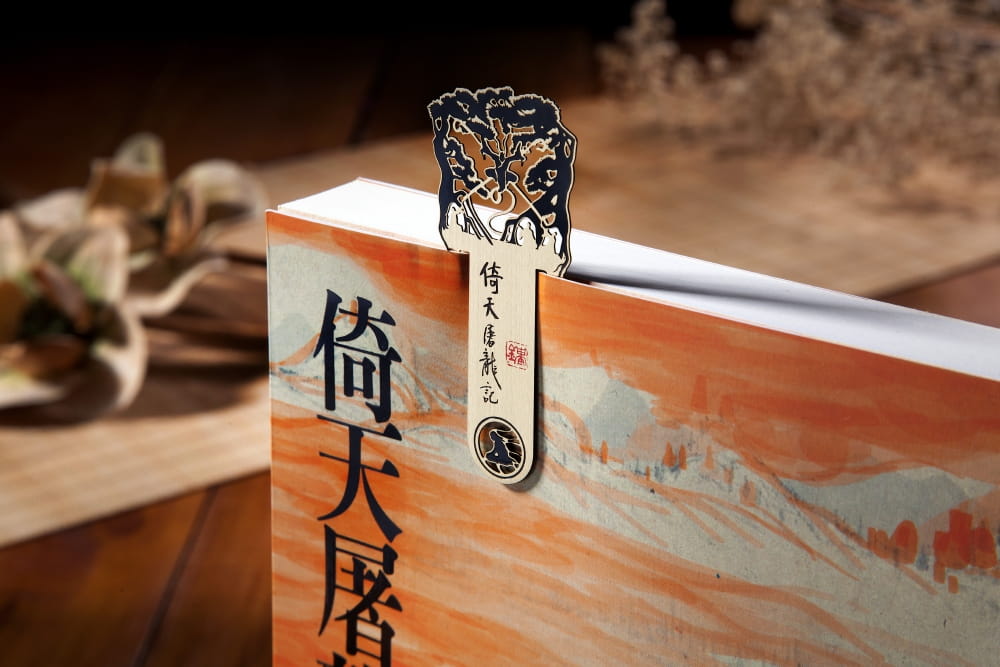 倚天屠龍記
倚天屠